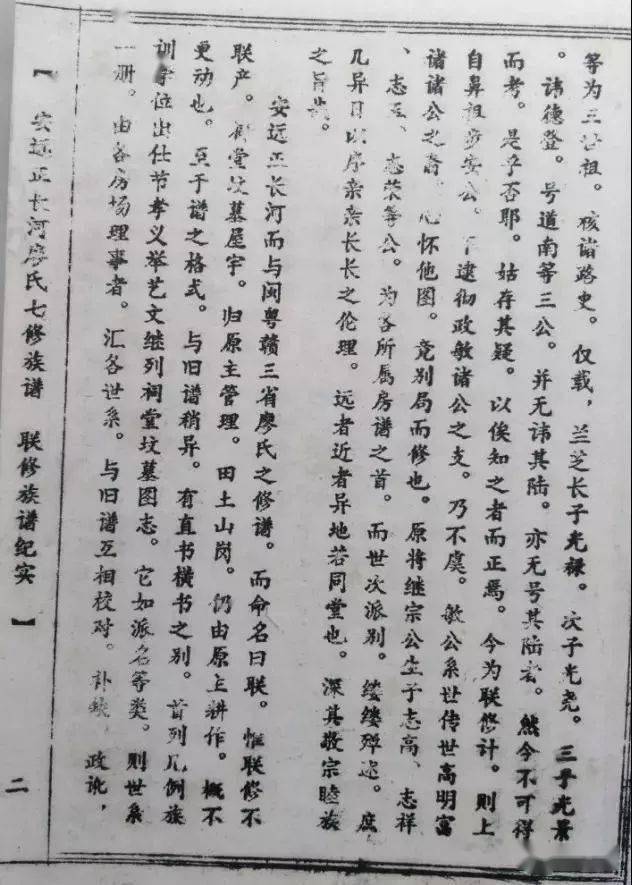 等为三世祖。核诸路史。仅载，兰芝长子光禄。次子光尧。三乎光景
。讳德登。号道南等三公。并无讳其陆。亦无号其陆者。然今不可得
而考。是乎否耶。姑存其疑。以俟知之者而正焉。今为联修计。则上
自鼻祖步安公。逮彻政敏诸公之支。乃不虞。敏公系世传世高明富
诸诸公之裔，心怀他图。竟别局而修也。原将继宗公生子志高、志祥
、志玉、志荣等公。为各所属房谱之首。而世次派别。缕缕殚述。庶
几异日以序亲亲长长之伦理。远者近者异地若同堂也。深其敬宗睦族
之旨哉。
安远正长河而与闽粤赣三省廖氏之修谱。而命名曰联。惟联修不
联产。祠堂坟墓屋宇。归原主管理。田土山岗。仍由原主耕作。概不
更动也。至于谱之格式。与旧谱稍异。有直书横书之别。首列凡例族
训学位出仕节孝义举艺文继列祠堂坟墓图志。它如派名等类。则世系
一册。由各房场理事者。汇各世系。与旧谱互相校对。补缺，政讹，
【 安远正长河廖氏七修族谱 联修族谱纪实 】 二